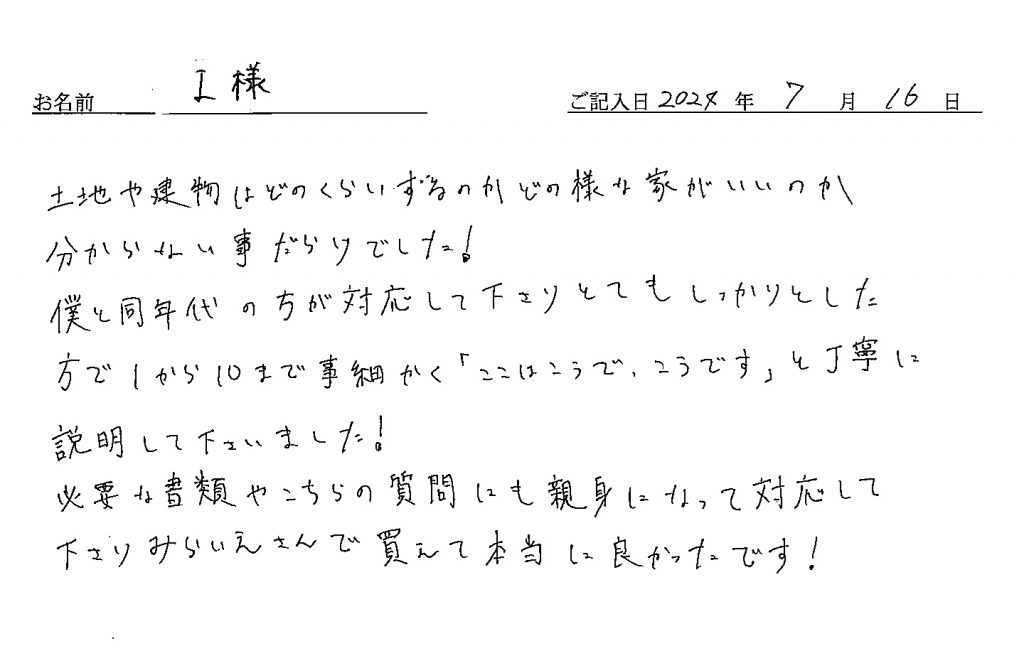 お名前 I様 ご記入日 2024 年 7 月 16 日
土地や建物はどのくらいずるのかどの様な家がいいのか
分からない事だらけでした!
僕と同年代の方が対応して下さりとてもしっかりとした
方で1から10まで事細かく「ここはこうで、こうです」と丁寧に
説明して下さいました!
必要な書類やこちらの質問にも親身になって対応して
下さりみらいえさんで買えて本当に良かったです!